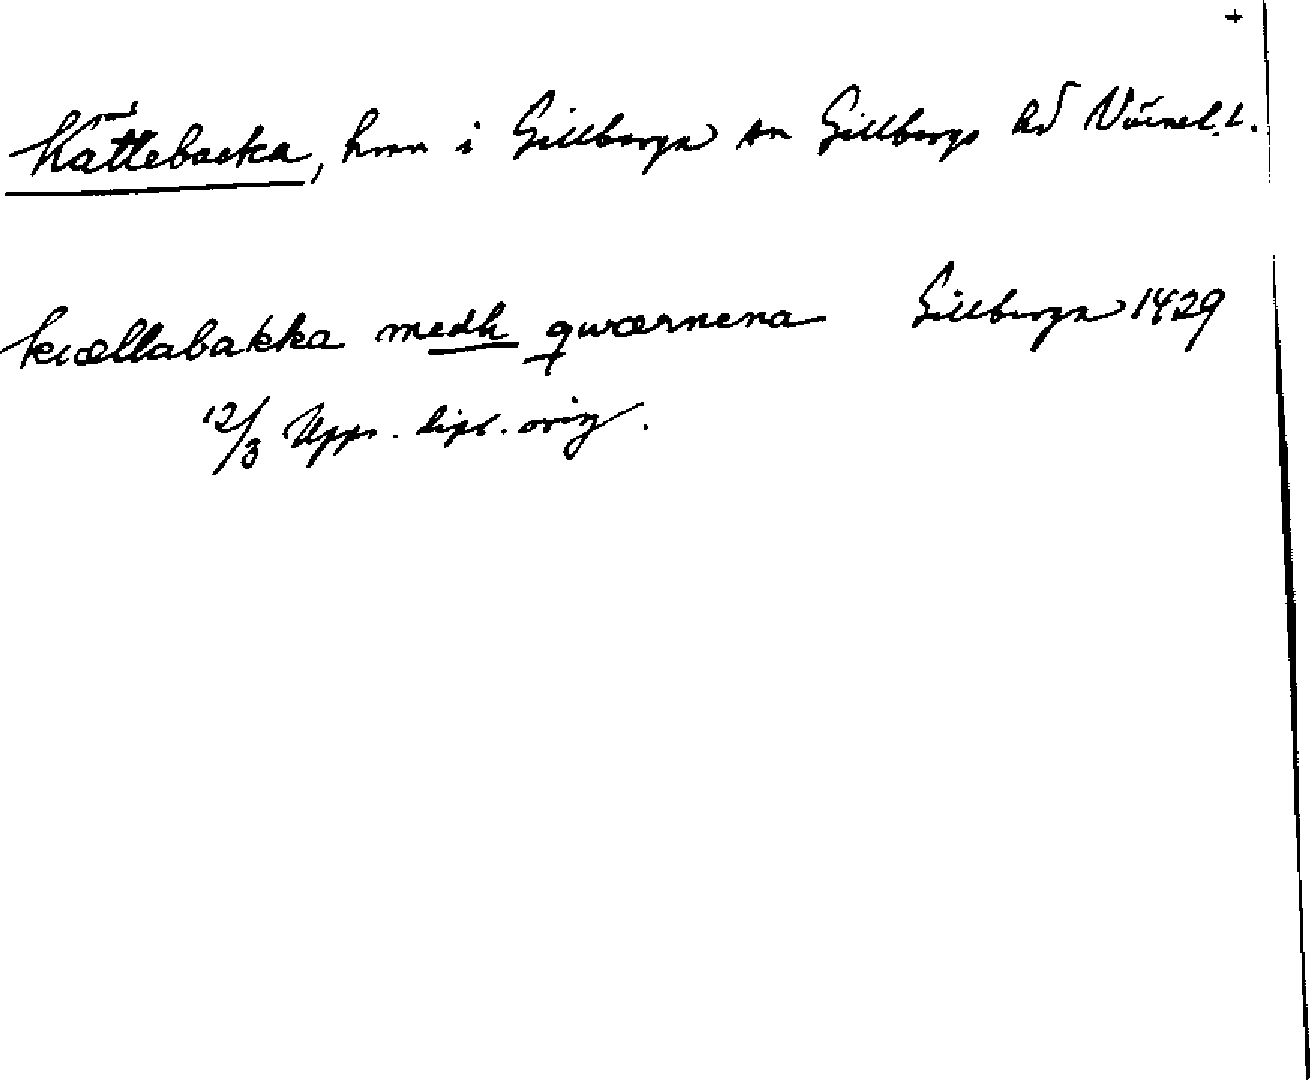 +
Kättebacka, hmn i Gillberga sn Gillbergs hd Värml. l.
kiællabakka medh qwærnena Gillberga 1429
12/3 Upps. dipl. orig.